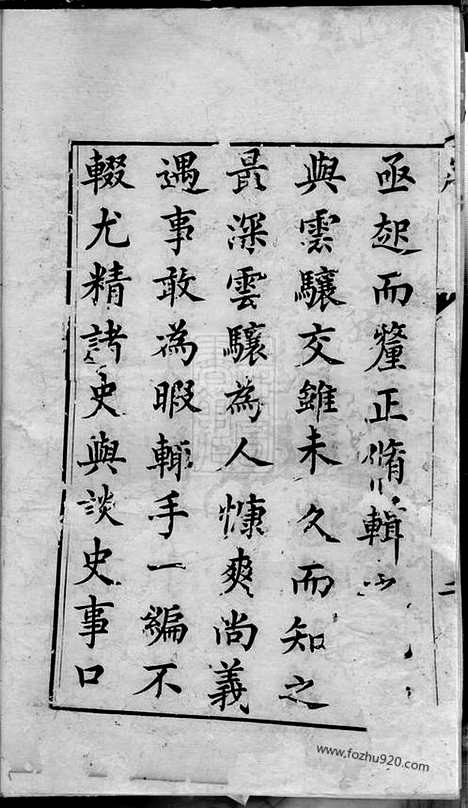 亟起而釐正脩輯
與雲驤交雖未久而知之
最深雲驤為人慷爽尚義
遇事敢為暇輒手一編不
輟尤精諸史與談史事口
二
www.fozhu920.com